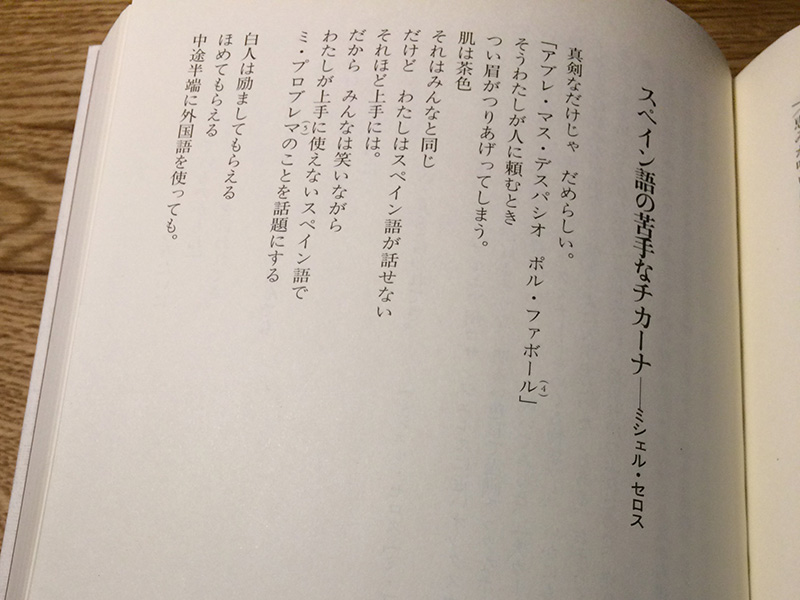 スペイン語の苦手なチカーナ——ミシェル・セロス
真剣なだけじゃ　だめらしい。
「アブレ・マス・デスパシオ　ポル・ファボール(4)」
そうわたしが人に頼むとき
つい眉がつりあげってしまう。
肌は茶色
それはみんなと同じ
だけど　わたしはスペイン語が話せない
それほど上手には。
だから　みんなは笑いながら
わたしが上手に使えないスペイン語で
ミ・プロブレマ(5)のことを話題にする
白人は励ましてもらえる
ほめてもらえる
中途半端に外国語を使っても。